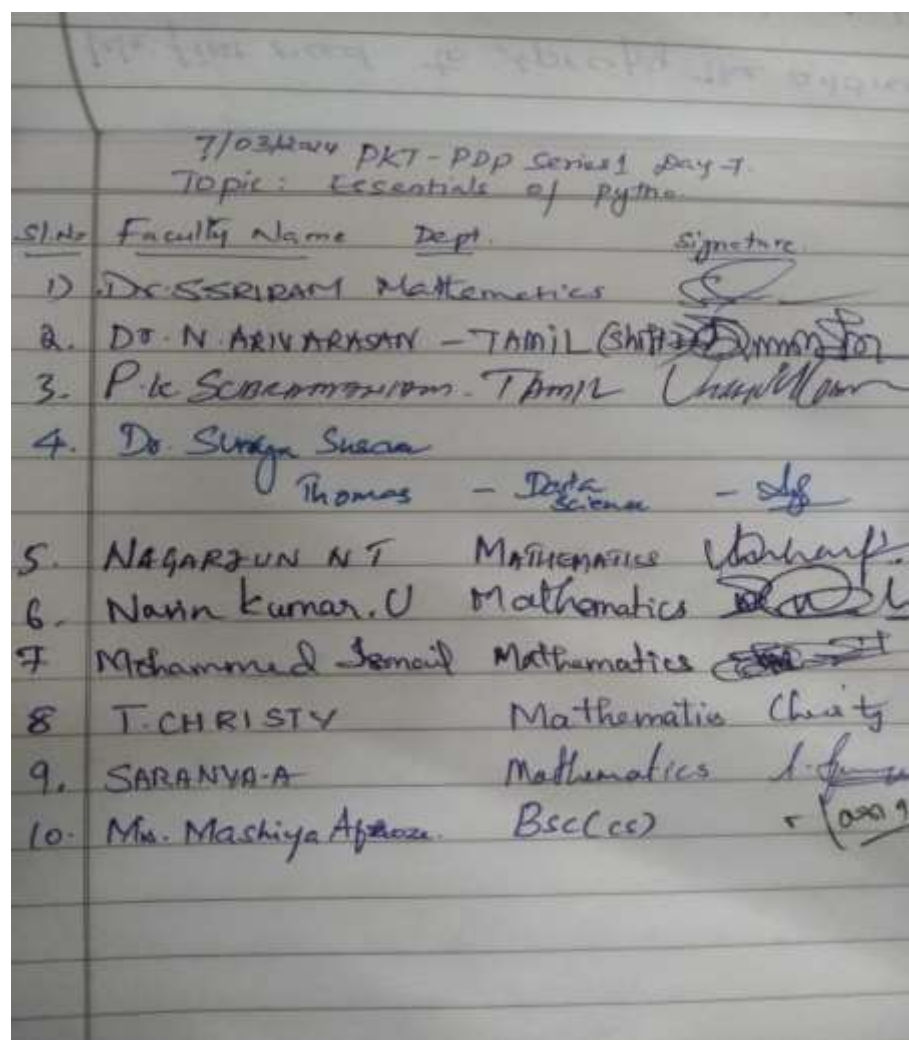 7/03/2024 PKT - PDP Series 1 Day-7.
Topic: Essentials of Pytho
Sl.No Faculty Name Dept. Signature
1) Dr. SSRIRAM Mathematics
2. Dr. N. ARIVARASAN - TAMIL (Shift
3. P.K TAMIL
4. Dr. Susan
Thomas - Data Science
5. NAGARJUN N T MATHEMATICS
6. Navin Kumar. U Mathematics
7 Mohammed Ismail Mathematics
8 T. CHRISTY Mathematics Christy
9. SARANYA-A Mathematics
10. Ms. Mashiya Afroze. Bsc(cs)